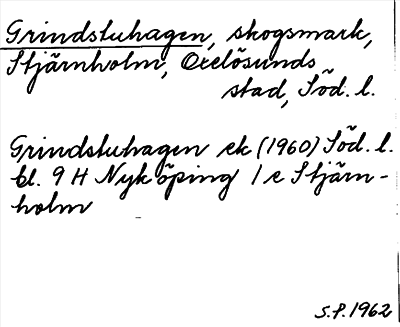 Grindstuhagen, skogsmark,
Stjärnholm, Oxelösunds
stad, Söd. l.
Grindstuhagen ek (1960) Söd. l.
bl. 9 H Nyköping 1 e Stjärn-
holm
S.P. 1962